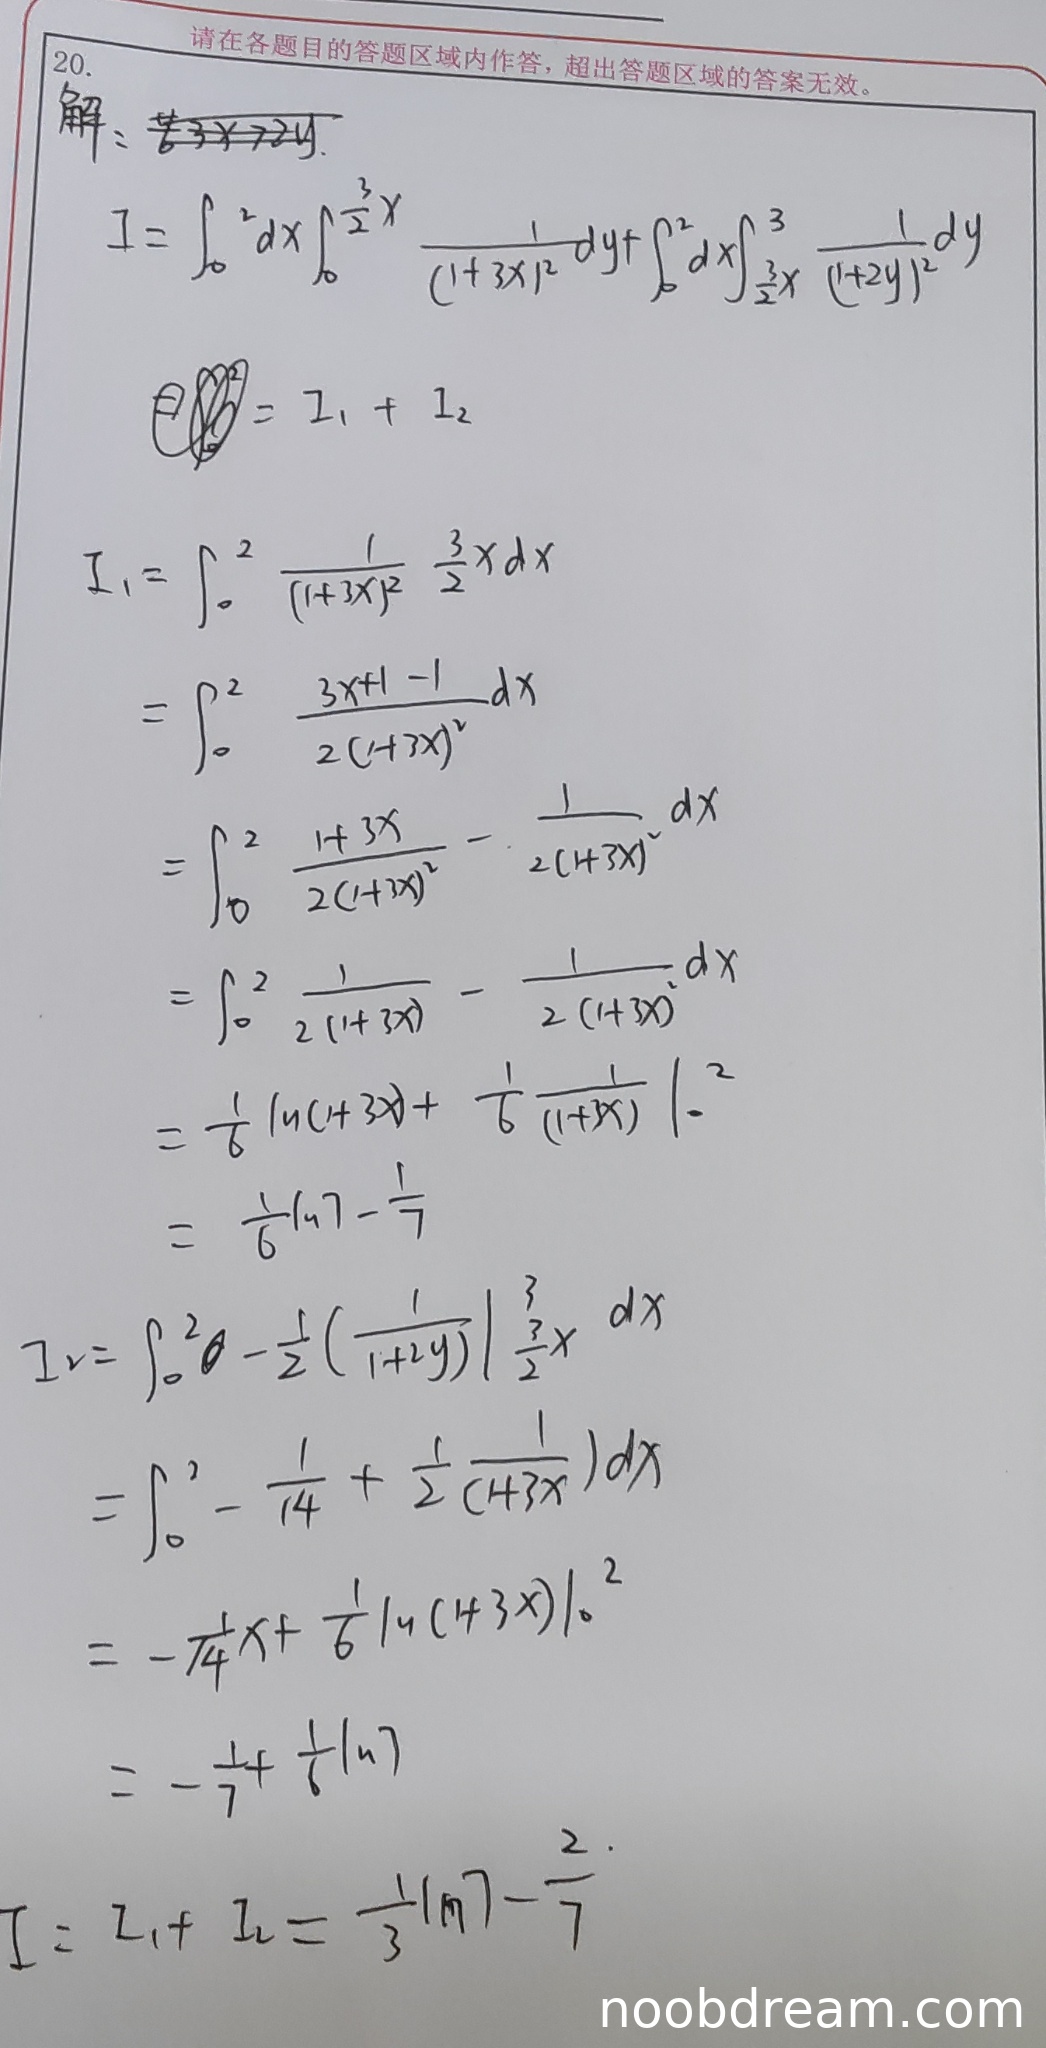 请在各题目的答题区域内作答，超出答题区域的答案无效。
20.
解: 若3x>2y.
I = ∫₀² dx ∫₀^{3/2 x} 1/(1+3x)² dy + ∫₀² dx ∫_{3/2 x}^3 1/(1+2y)² dy
= I₁ + I₂
I₁ = ∫₀² 1/(1+3x)² 3/2 x dx
= ∫₀² (3x+1-1)/(2(1+3x)²) dx
= ∫₀² (1+3x)/(2(1+3x)²) - 1/(2(1+3x)²) dx
= ∫₀² 1/(2(1+3x)) - 1/(2(1+3x)²) dx
= 1/6 ln(1+3x) + 1/6 1/(1+3x) |₀²
= 1/6 ln7 - 1/7
I₂ = ∫₀² -1/2 (1/(1+2y)) |_{3/2 x}^3 dx
= ∫₀² - 1/14 + 1/2 1/(1+3x) ) dx
= -1/14 x + 1/6 ln(1+3x) |₀²
= -1/7 + 1/6 ln7
I = I₁ + I₂ = 1/3 ln7 - 2/7 .
noobdream.com